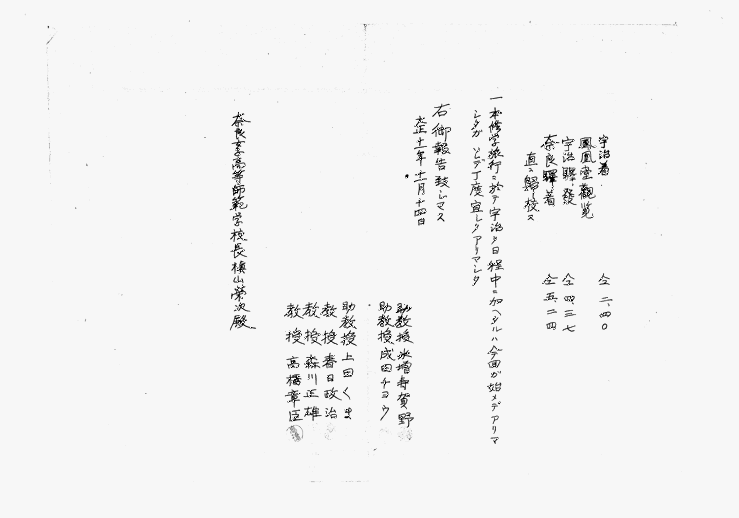 宇治着 仝 二、四〇
鳳凰堂觀覧
宇治驛發 仝 四、三七
奈良驛着 仝 五、二四
直ニ歸校ス
一 本修学旅行ニ於テ宇治ヲ日程中ニ加ヘタルハ今回ガ始メデアリマ
シタガ ソレデ丁度宜シクアリマシタ
右御報告致シマス
大正十一年十一月十四日
助教授 水増寿賀野
助教授 成田チヨウ
助教授 上田くま
教授 春日政治
教授 森川正雄
教授 高橋章臣
奈良女高等師範学校長槙山榮次殿